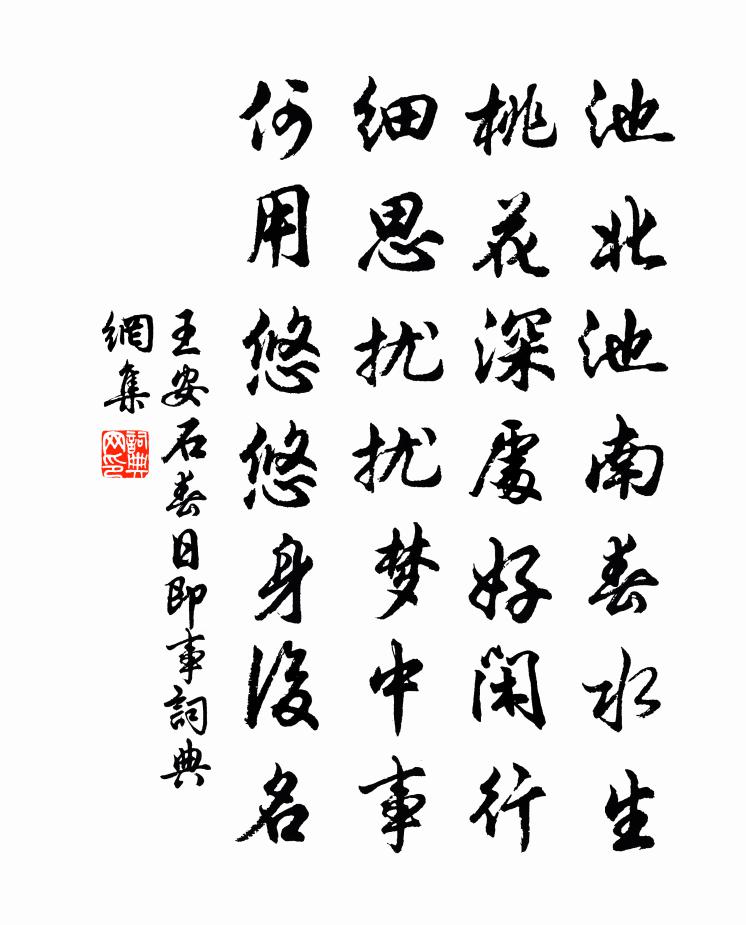 池北池南春水生
桃花深處好闲行
细思扰扰梦中事
何用悠悠身後名
王安石春日即事詞典
網集
詞典
网印